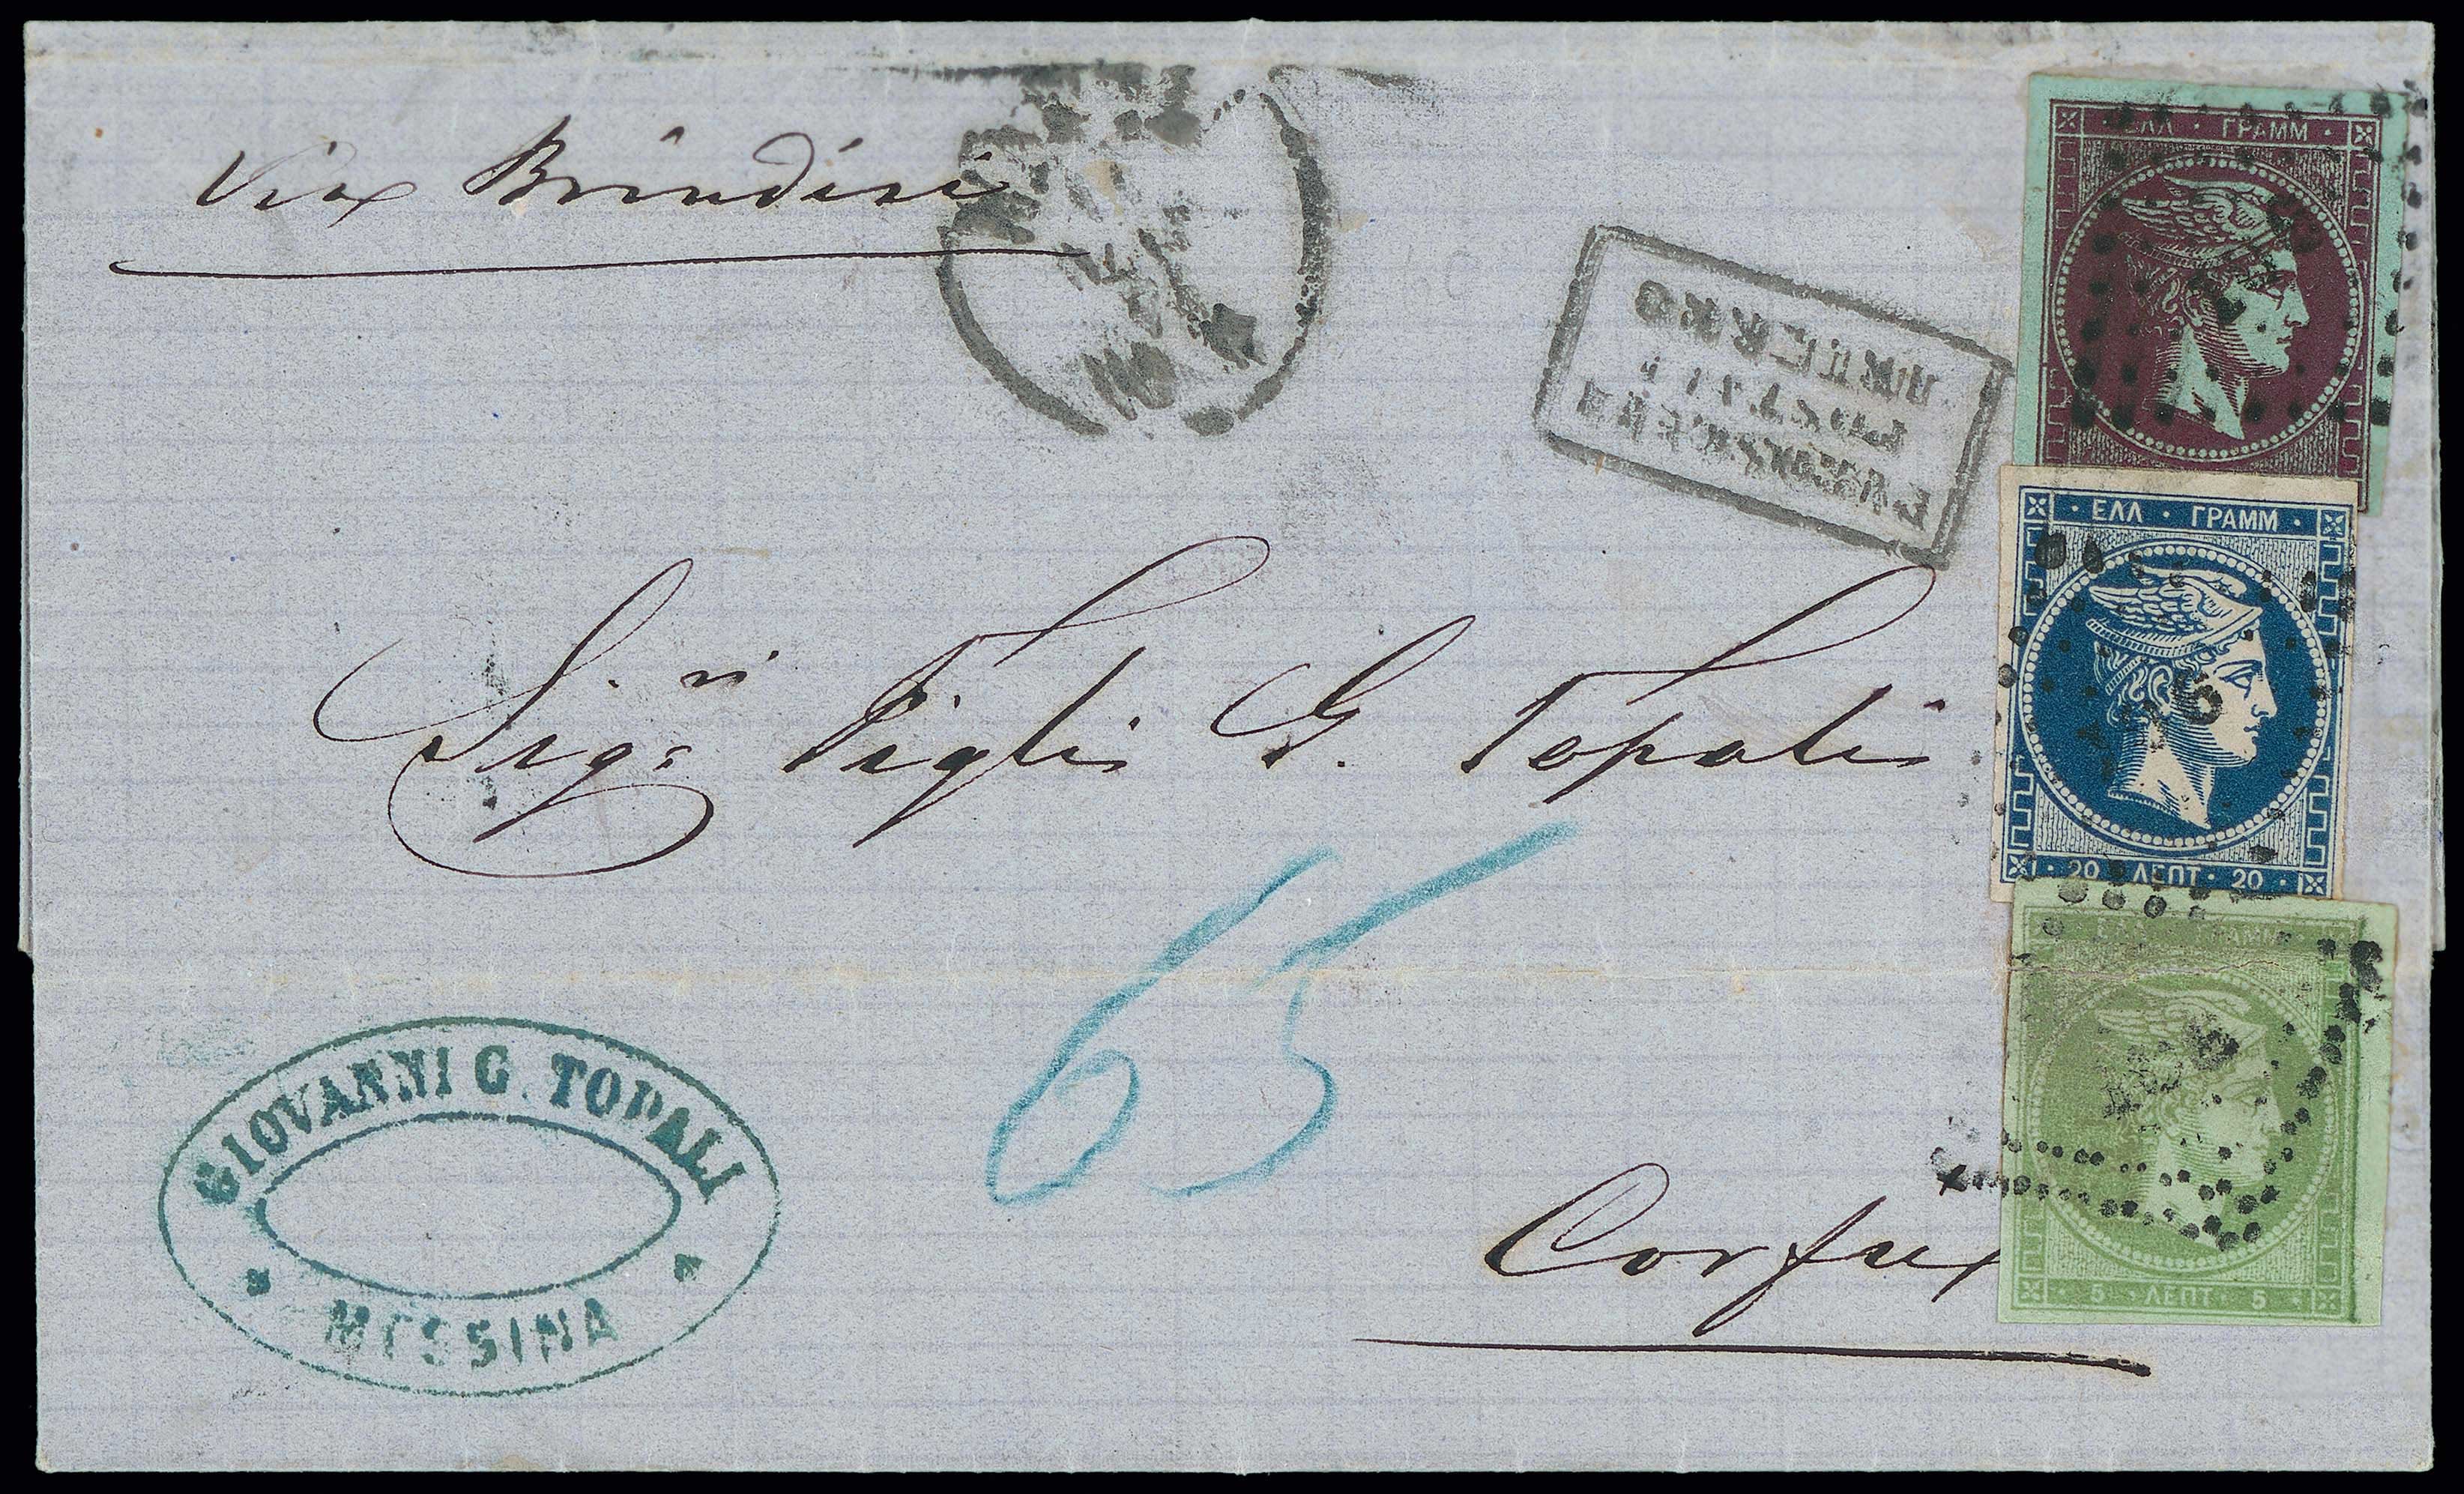 Via Brindisi
ΕΛΛ · ΓΡΑΜΜ ·
· ΕΛΛ · ΓΡΑΜΜ ·
Sig.ri Figli G. Topali
· 20 · ΛΕΠΤ · 20 ·
ΕΛΛ · ΓΡΑΜΜ
65
GIOVANNI G. TOPALI
MESSINA
Corfu
· 5 · ΛΕΠΤ · 5 ·